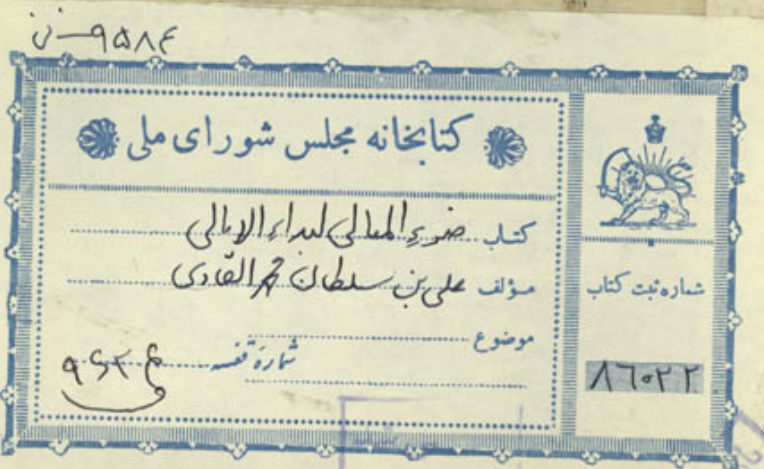 کتابخانه مجلس شورای ملی
کتاب ضوء المعالی لبداء الامالی
مؤلف علی بن سلطان محمد القاری
موضوع
شماره قفسه
شماره ثبت کتاب
۸۶۰۲۲